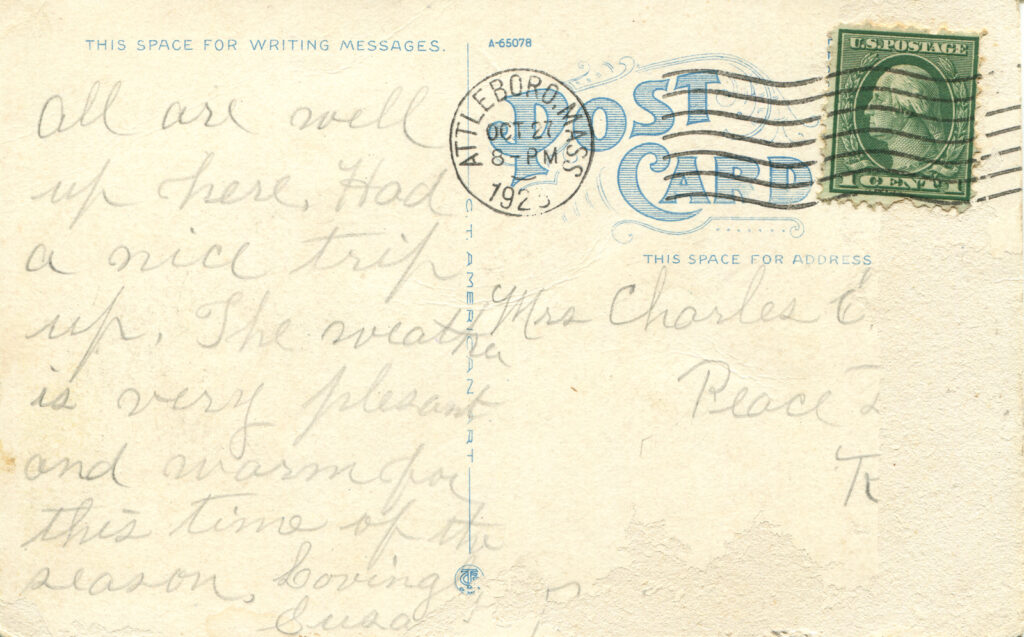 THIS SPACE FOR WRITING MESSAGES.
All are well
up here. Had
a nice trip
up. The weather
is very plesant
and warm for
this time of the
season. Lovingly
A-65078
POST
CARD
ATTLEBORO, MASS
OCT 27
8-PM
U.S. POSTAGE
1 CENT 1
THIS SPACE FOR ADDRESS
Mrs Charles
Peace
CT AMERICAN ART